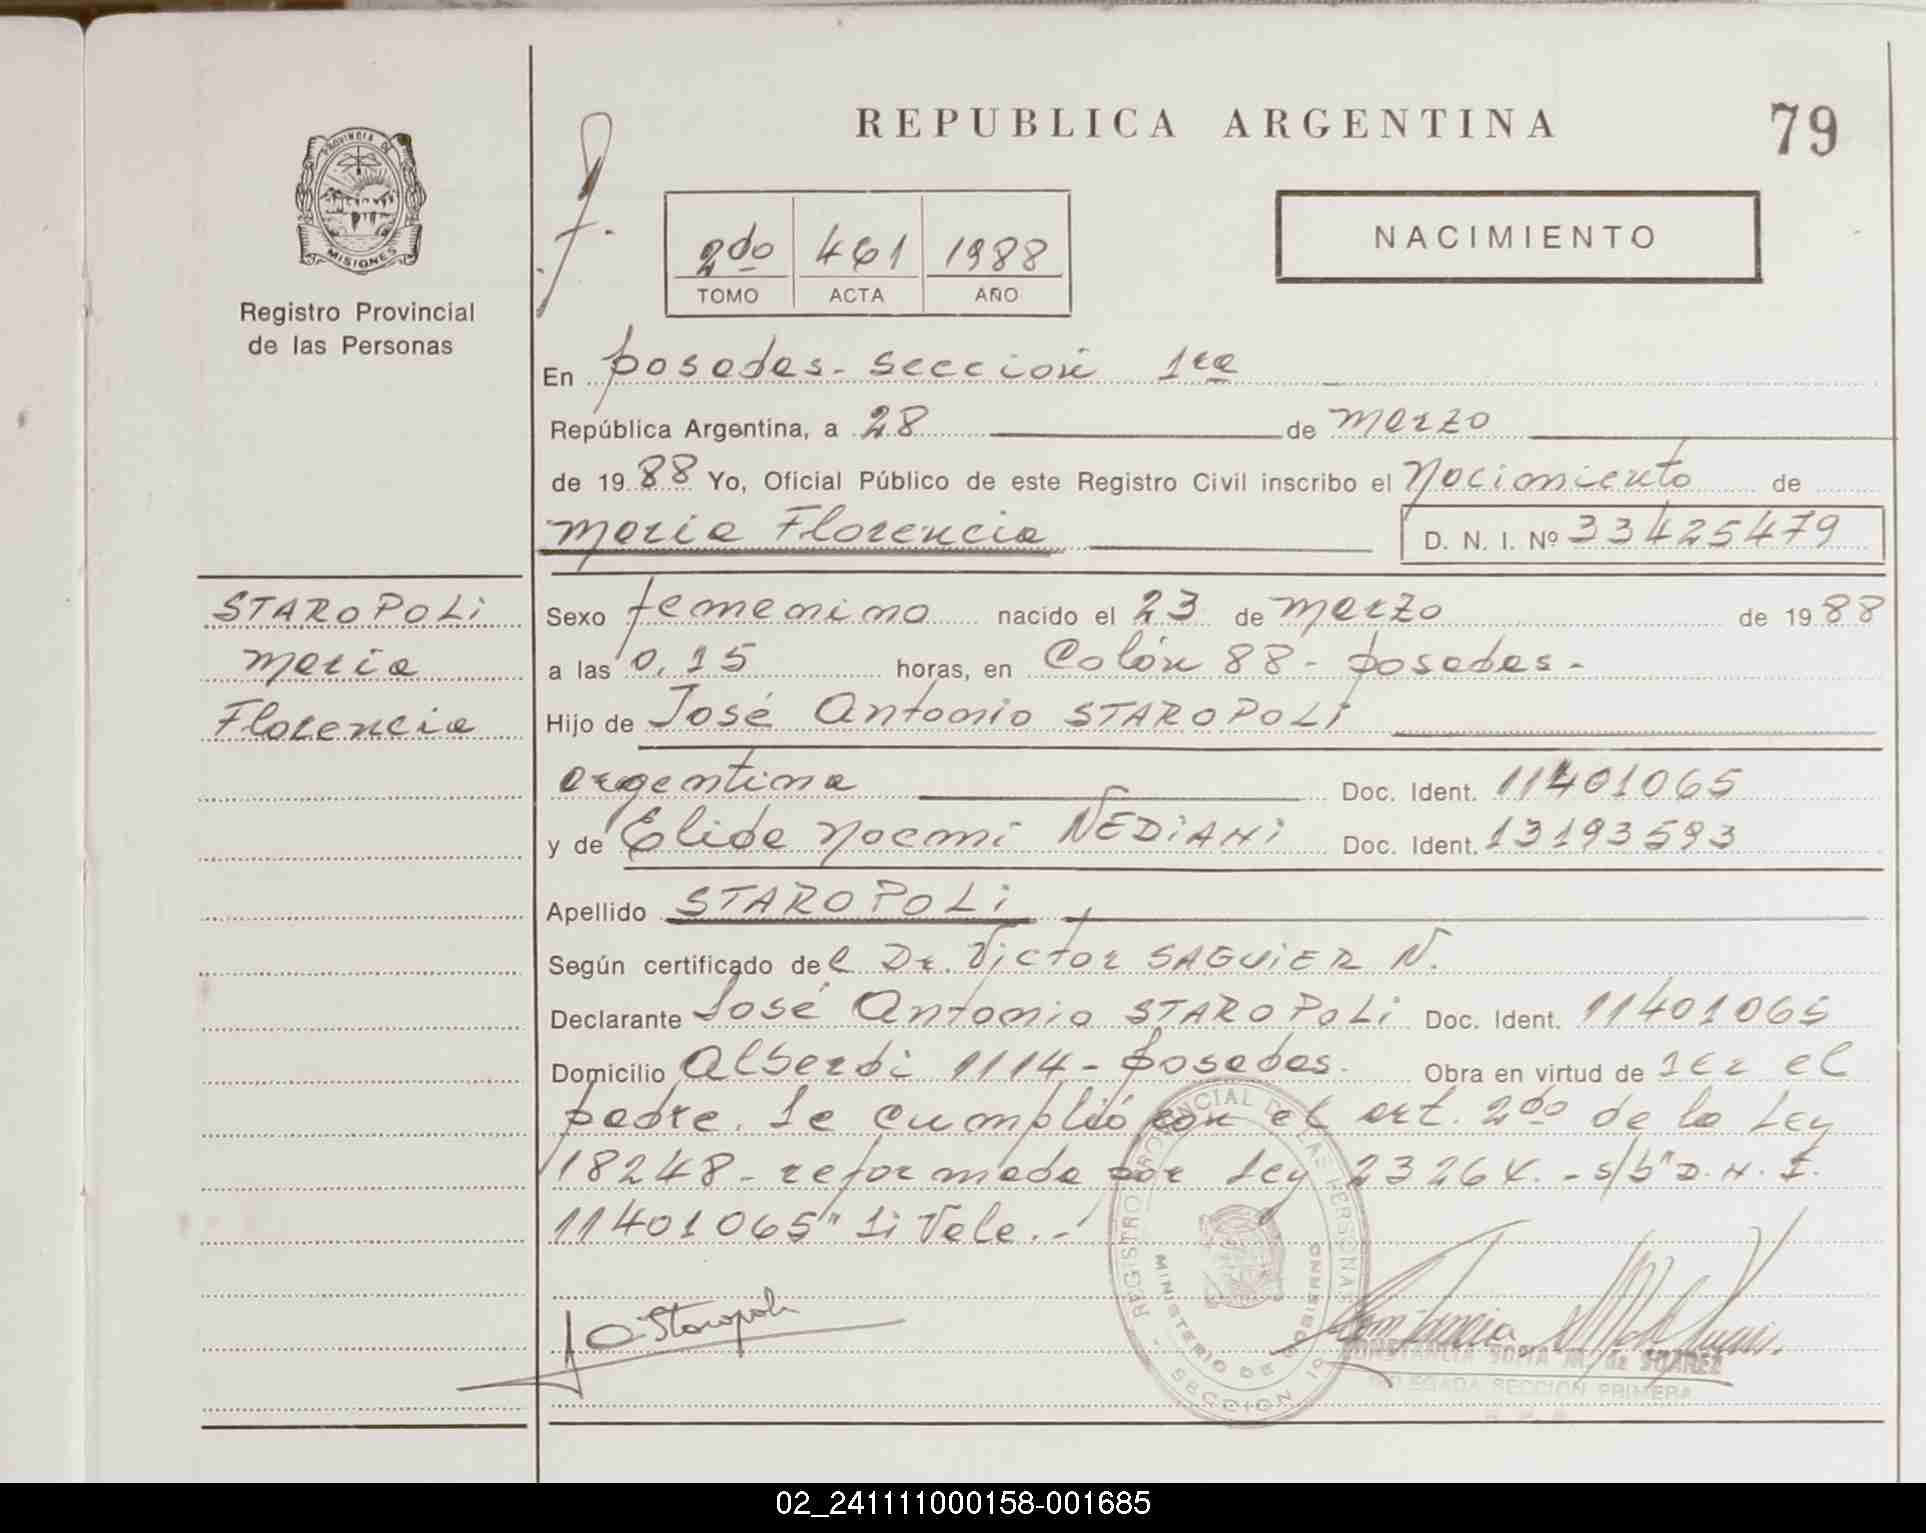 REPUBLICA ARGENTINA
79
PROVINCIA DE
MISIONES
Registro Provincial
de las Personas
2do 461 1988
TOMO ACTA AÑO
NACIMIENTO
En Posadas - Sección 1ra
República Argentina, a 28 de marzo
de 1988 Yo, Oficial Público de este Registro Civil inscribo el Nacimiento de
María Florencia D. N. I. Nº 33425479
STAROPOLI
María
Florencia
Sexo femenino nacido el 23 de marzo de 1988
a las 0,15 horas, en Colón 88 - Posadas -
Hijo de José Antonio STAROPOLI
argentina Doc. Ident. 11401065
y de Elide Noemi NEDIANI Doc. Ident. 13193593
Apellido STAROPOLI
Según certificado del Dr. Victor SAGUIER N.
Declarante José Antonio STAROPOLI Doc. Ident. 11401065
Domicilio Alberdi 1114 - Posadas. Obra en virtud de ser el
padre. Se cumplió con el art. 2do de la Ley
18248 - reformada por Ley 23264. - s/b "D.N.I.
11401065" Si Vale. -
J A Staropoli
REGISTRO PROVINCIAL DE LAS PERSONAS
MINISTERIO DE GOBIERNO
SECCION 1º
CONSTANCIA SOFIA M. de SUAREZ
DELEGADA SECCION PRIMERA
02_241111000158-001685